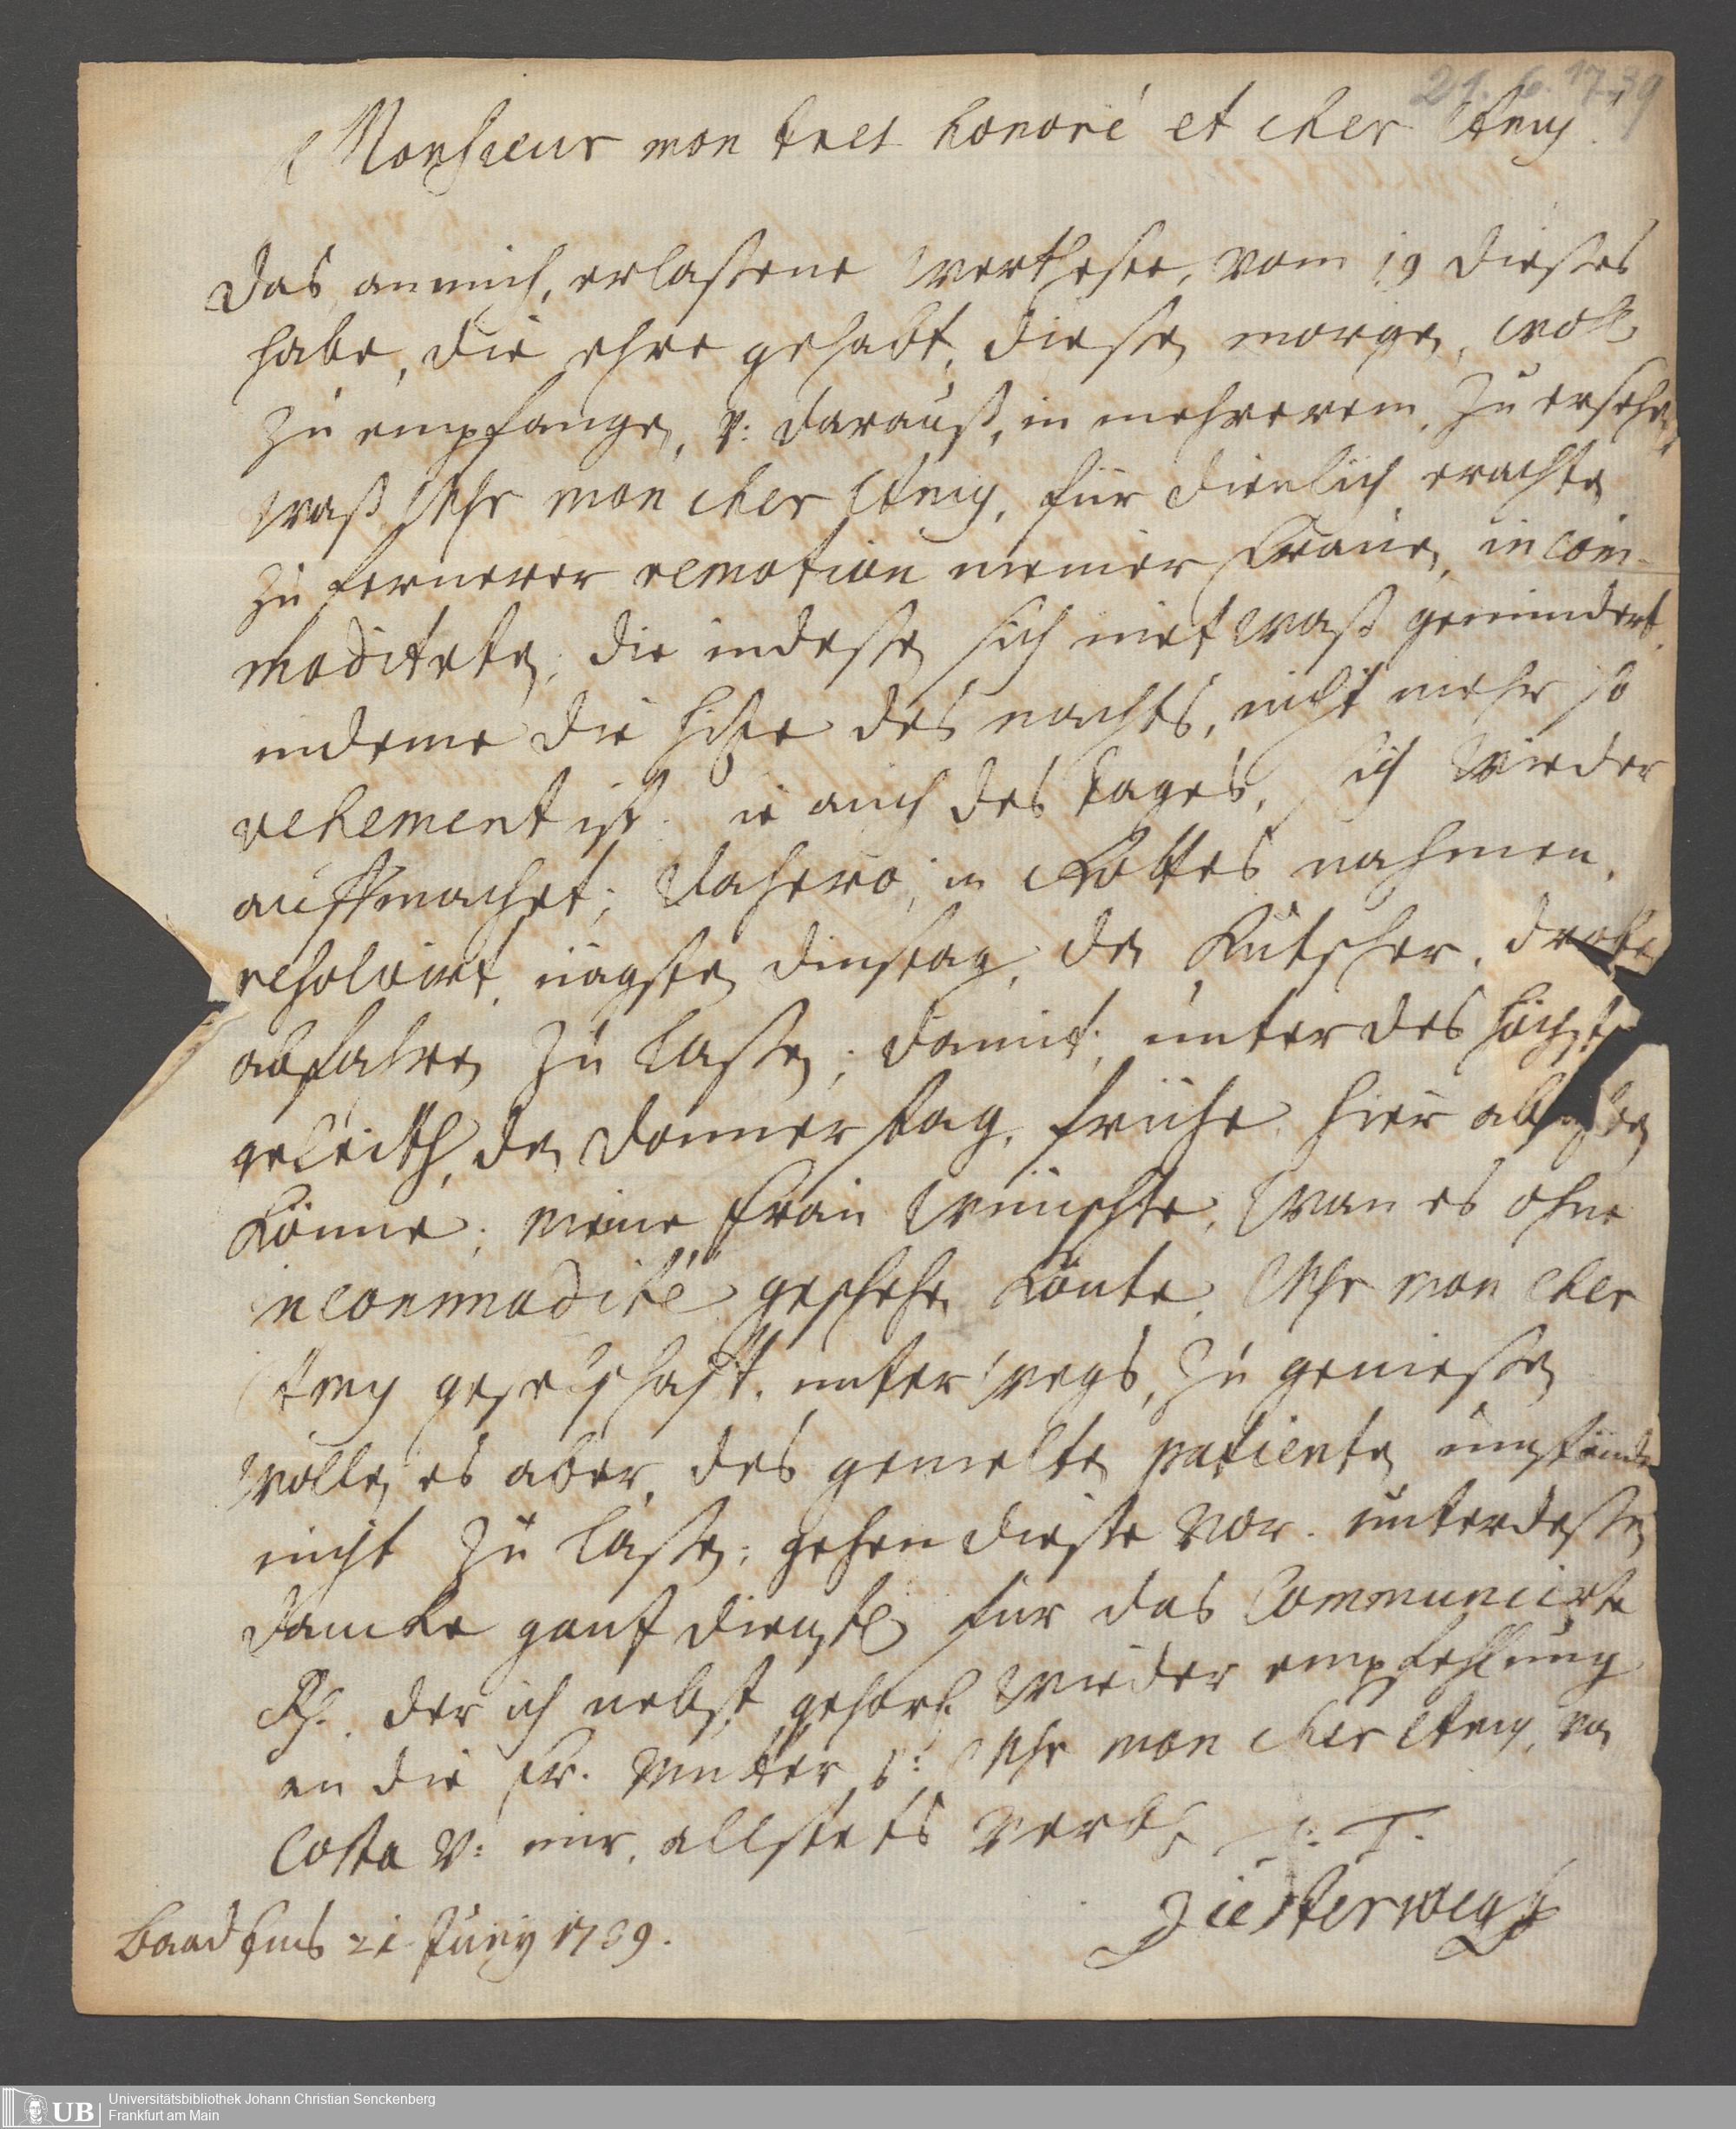 21. 6. 1739
Monsieur mon tres honoré et cher Amy!
Das an mich, erlaßene wertheste, vom 19 dießes
habe, die ehre gehabt, dießen morgen, wohl
zu empfangen, v: darauß, in mehrerem, zu ersehen,
waß Ihr mon cher Amy, für dienlich erachten
zu fernerer remotion meiner Frauen, incom-
moditeten; die indeßen sich in etwaß gemindert,
indeme die hitze des nachts, nicht mehr so
vehement ist. sie auch des tages, sich wieder
auffmachet; dahero, in Gottes nahmen,
resolvirt, nägsten dinstag, den Kutscher,
abfahren zu laßen; damit, unter des höchsten
geleith, den donnerstag, frühe hier
könne; meine Frau wünschte, wan es ohne
incommodité geschehen könte, Ihr mon cher
Amy geselschafft, unterwegs, zu genießen
wollen es aber, des gemelten patienten umstände
nicht zu laßen; gehen dieße vor. unterdeßen
dancke gantz dienstl für das Communicirte
der ich nebst gehors wieder empfehlung
an die Fr. Mutter s: Ihr mon cher Amy, von
Costa v: mir, allstets verbl
Diesterwegh
Baad Ems 21 Juny 1739.
UB
Universitätsbibliothek Johann Christian Senckenberg
Frankfurt am Main